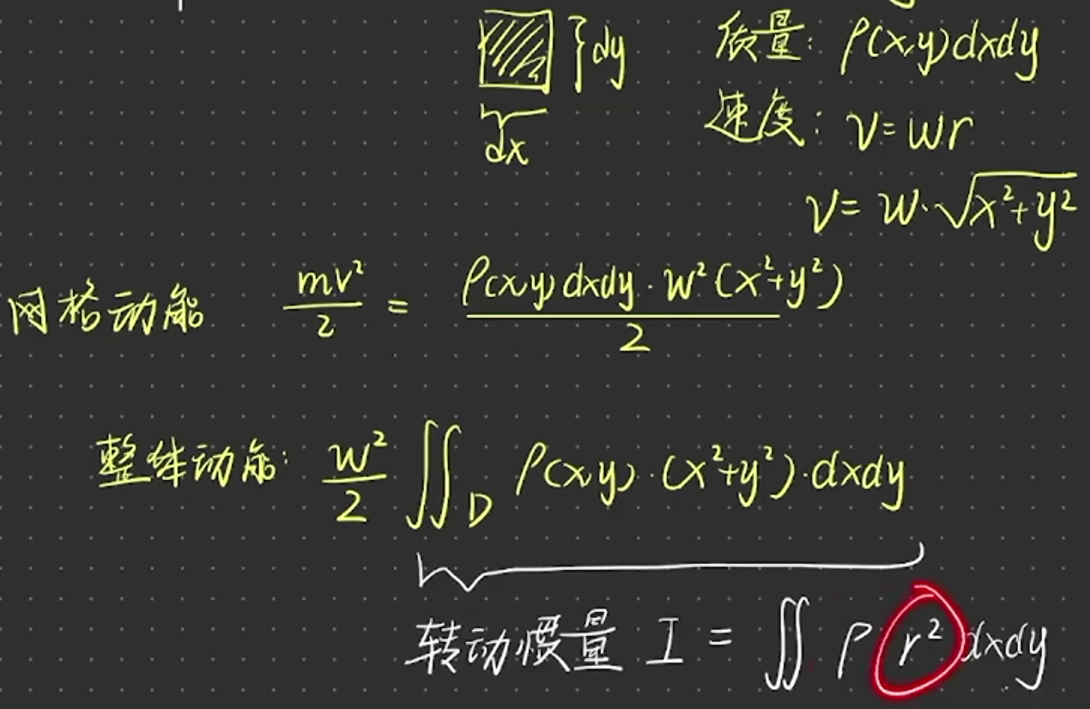 dy 质量: ρ(x,y)dxdy
dx 速度: v=wr
v=w·√(x²+y²)
网格动能 mv²/2 = ρ(x,y)dxdy·w²(x²+y²)/2
整体动能: w²/2 ∬_D ρ(x,y)·(x²+y²)·dxdy
转动惯量 I = ∬ ρ r² dxdy